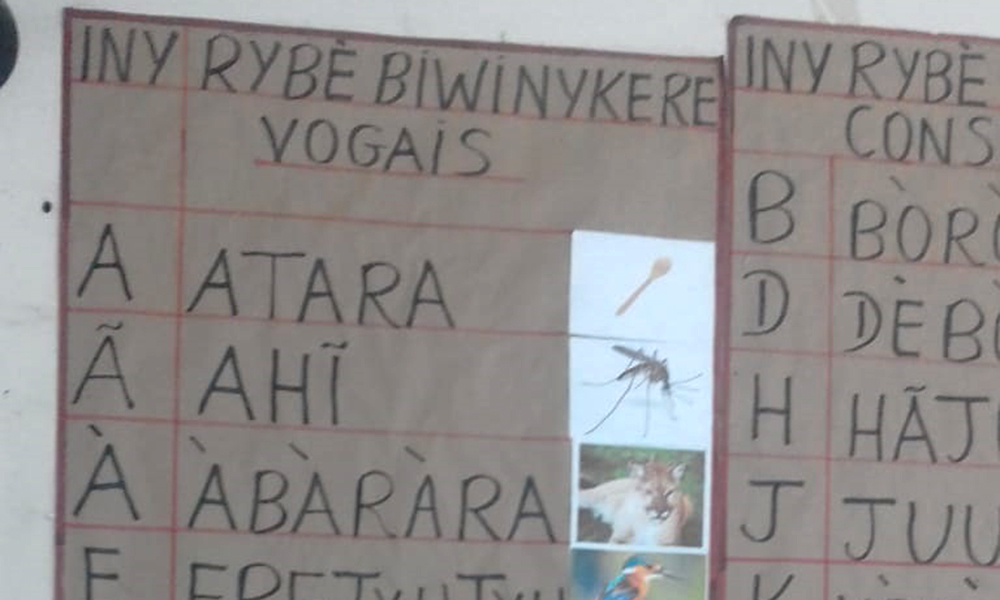 INY RYBÈ BIWINYKERE
VOGAIS
A ATARA
Ã AHĨ
À ÀBÀRÀRA
E
INY RYBÈ
CONS
B BÒRÒ
D DÈB
H HÃJ
J JUU
K